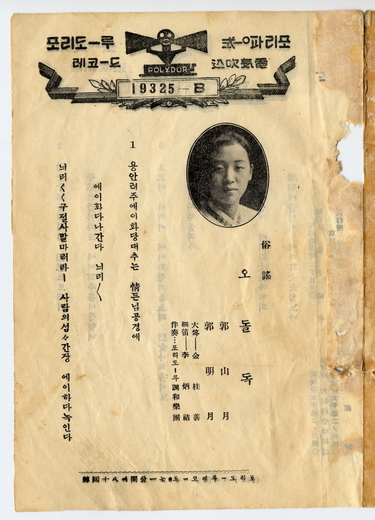 포리도ー루
레코ー드
電氣吹込
POLYDOR
19325-B
俗謠
오돌독
郭山月
郭明月
大笒—金桂善
細笛—李炳祜
伴奏…포리도ー루調和樂團
1 용안려주에이화당대추는 情든님공경에
에이화다나간다 늬리〱
늬리〱〱구절사말마러라ー 사람의섬々간장 에이하다녹인다